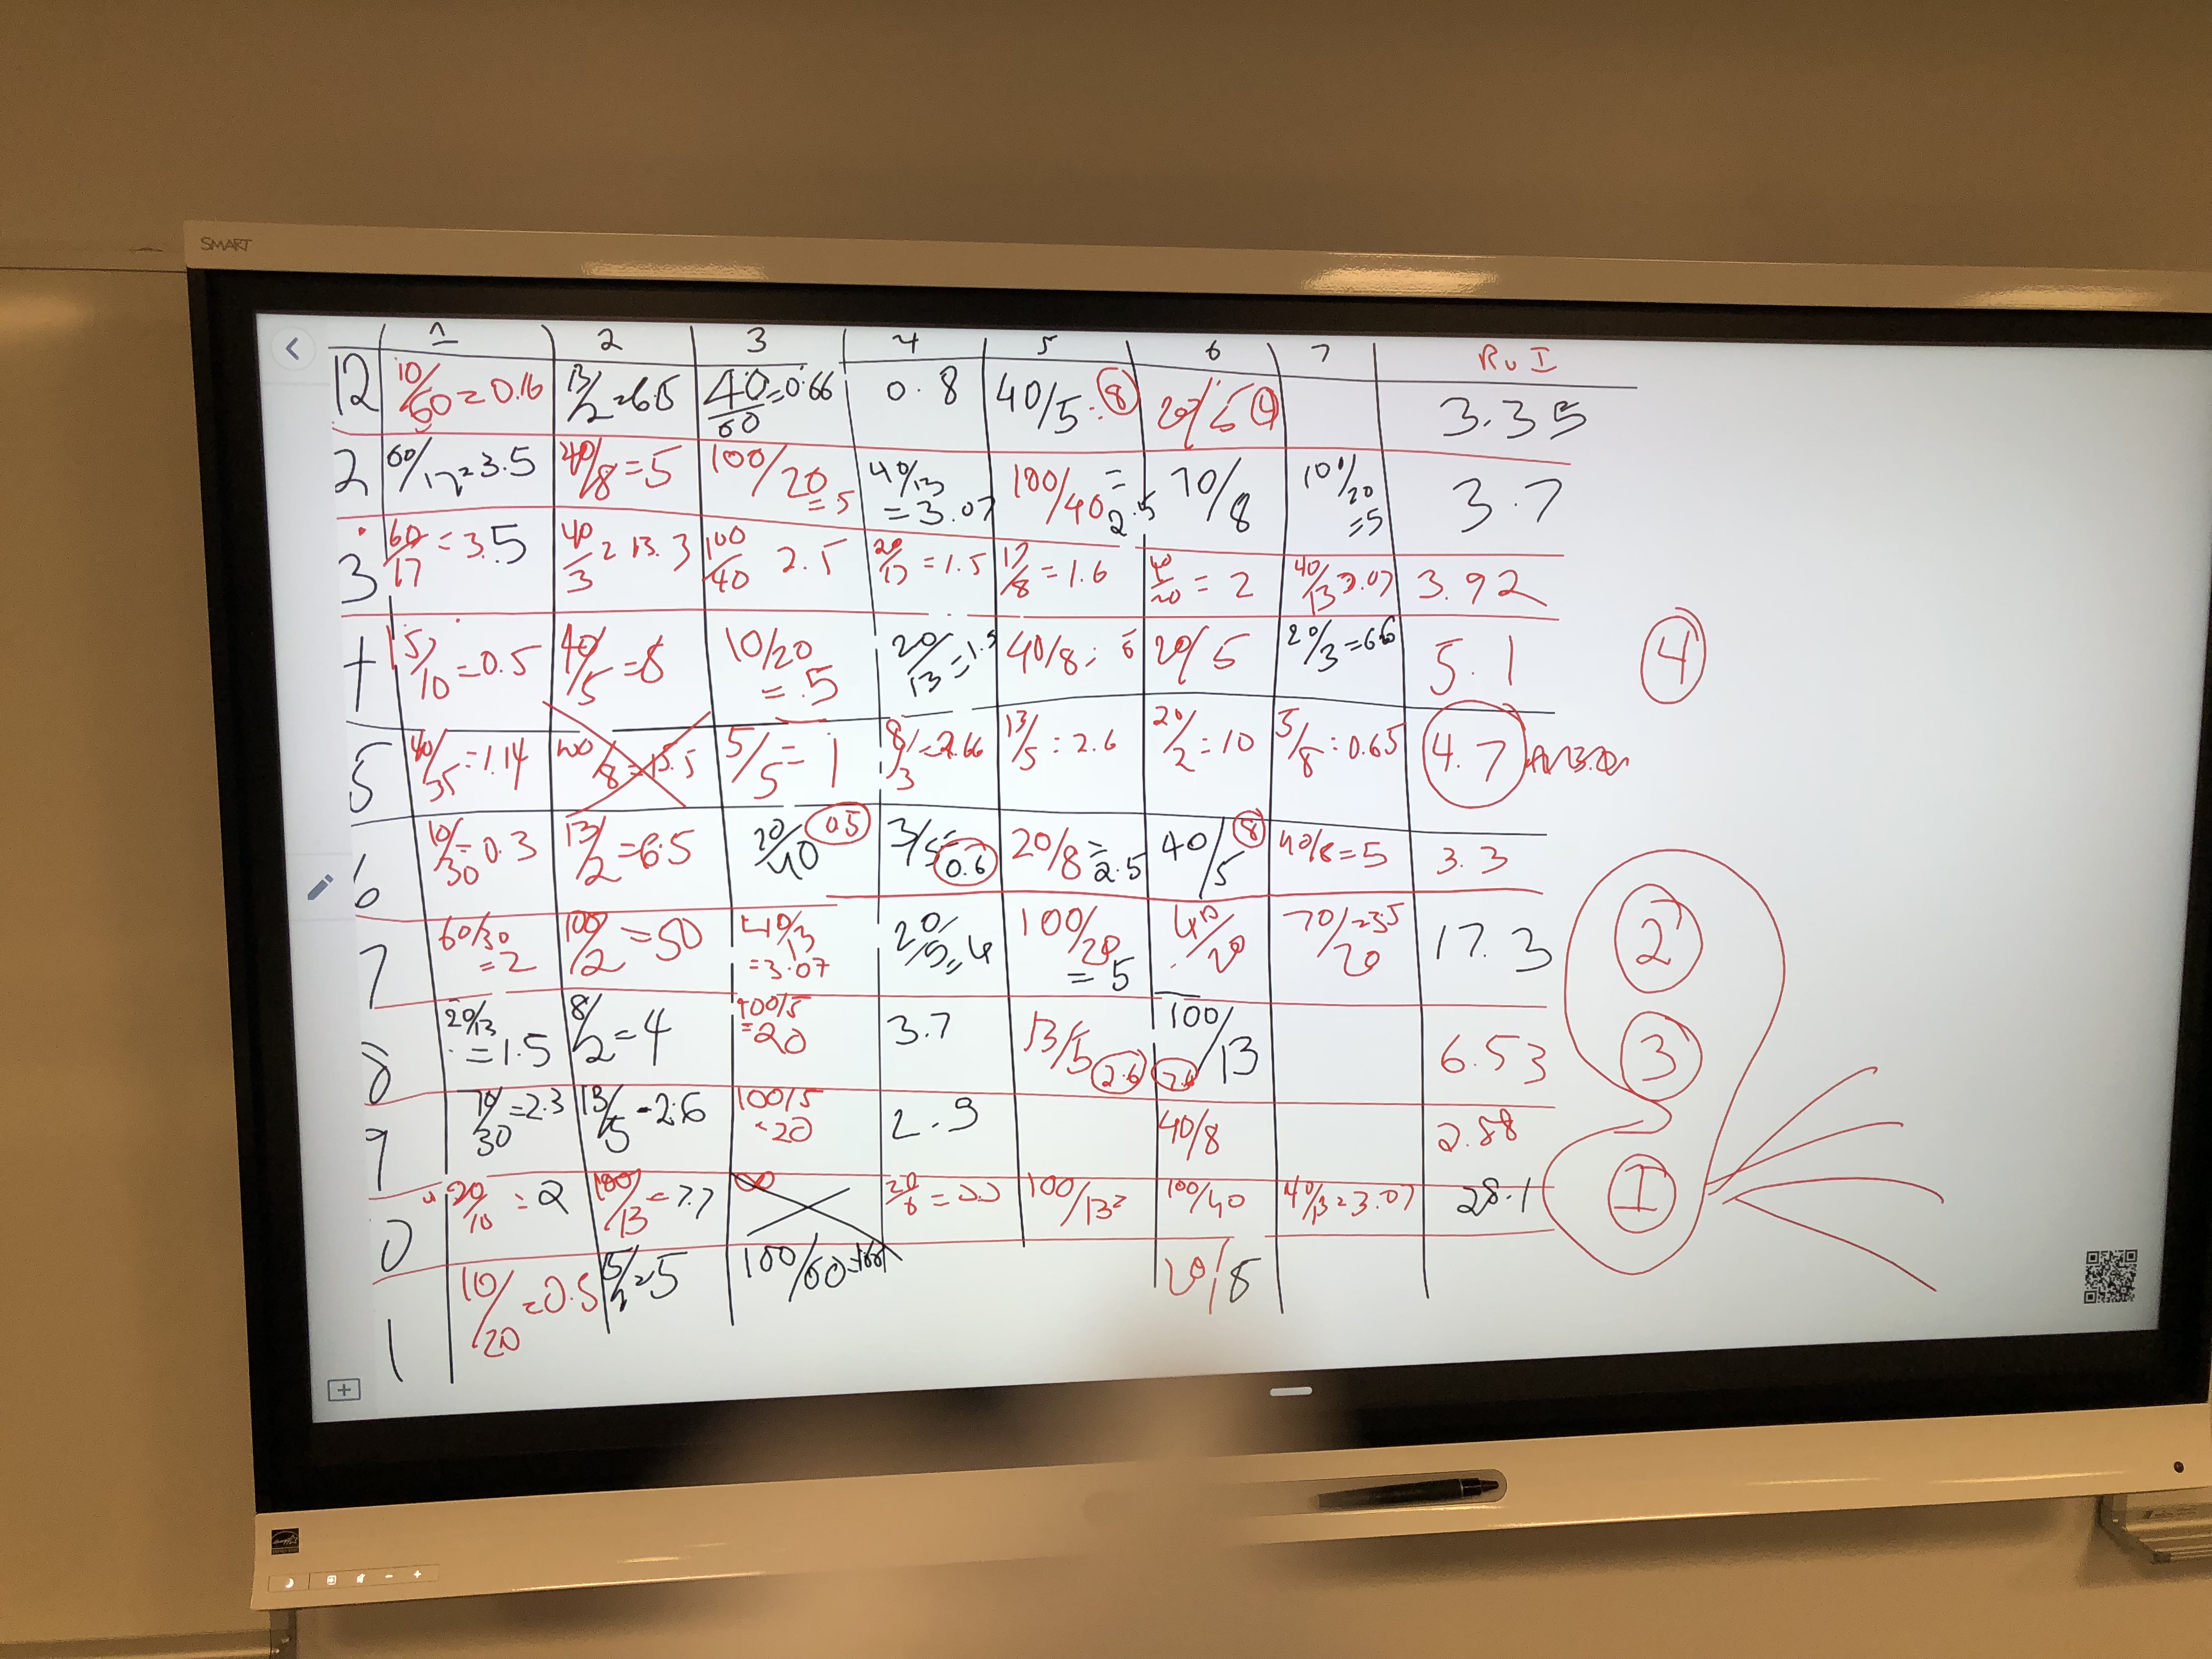 SMART
1 2 3 4 5 6 7 RuI
12 10/60=0.16 13/2=6.5 40/60=0.66 0.8 40/5:8 20/5 4 3.35
2 60/17=3.5 40/8=5 100/20=5 40/13=3.07 100/40=2.5 70/8 100/20=5 3.7
3 60/17=3.5 40/3=13.3 100/40 2.5 20/13=1.5 13/8=1.6 40/20=2 40/13 3.07 3.92
5/10=0.5 40/5=8 10/20=.5 20/13=1.5 40/8: 5 20/5 20/3=66 5.1 4
5 40/35=1.14 5/5=1 8/3=2.66 13/5:2.6 20/2=10 5/8:0.65 4.7
6 10/30=0.3 13/2=6.5 20/40 0.5 3/5=0.6 20/8=2.5 40/5 8 40/8=5 3.3
7 60/30=2 100/2=50 40/13=3.07 20/5=4 100/20=5 40/20 70/20=3.5 17.3 2
8 20/13=1.5 8/2=4 100/5=20 3.7 13/5 2.6 100/13 6.53 3
9 70/30=2.3 13/5=2.6 100/5=20 2.9 40/8 2.88
0 20/10=2 100/13=7.7 100/13= 100/40 40/13=3.07 28.1 1
1 10/20=0.5 =5 100/60 20/8